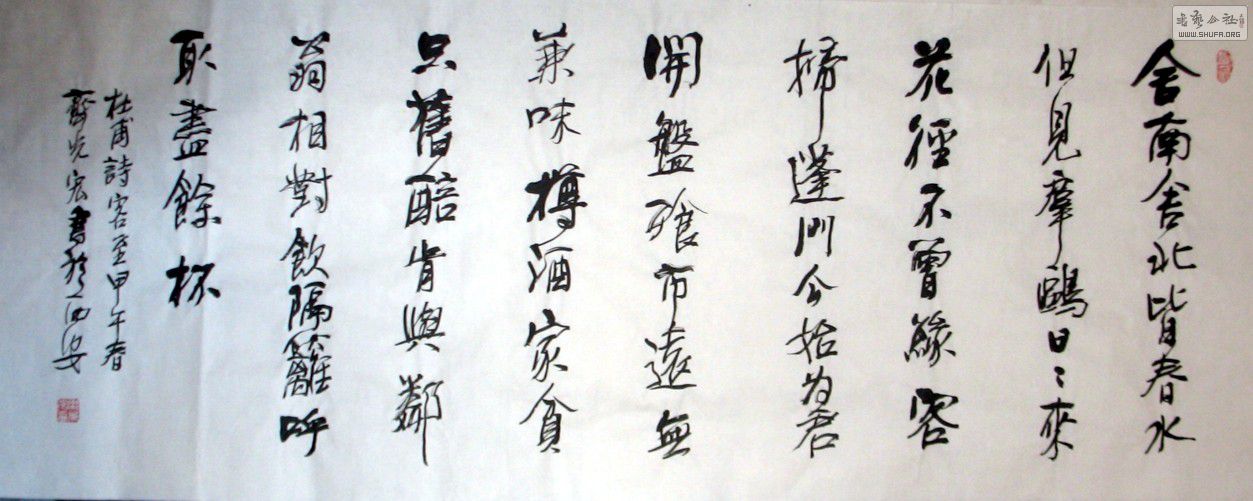 舍南舍北皆春水
但見羣鷗日〻來
花徑不曾緣客
掃蓬門今始为君
開盤飧市遠無
兼味樽酒家貧
只舊醅肯與鄰
翁相對飲隔籬呼
取盡餘杯
杜甫詩客至甲午春
齊光宏書於西安
書藝公社
WWW.SHUFA.ORG